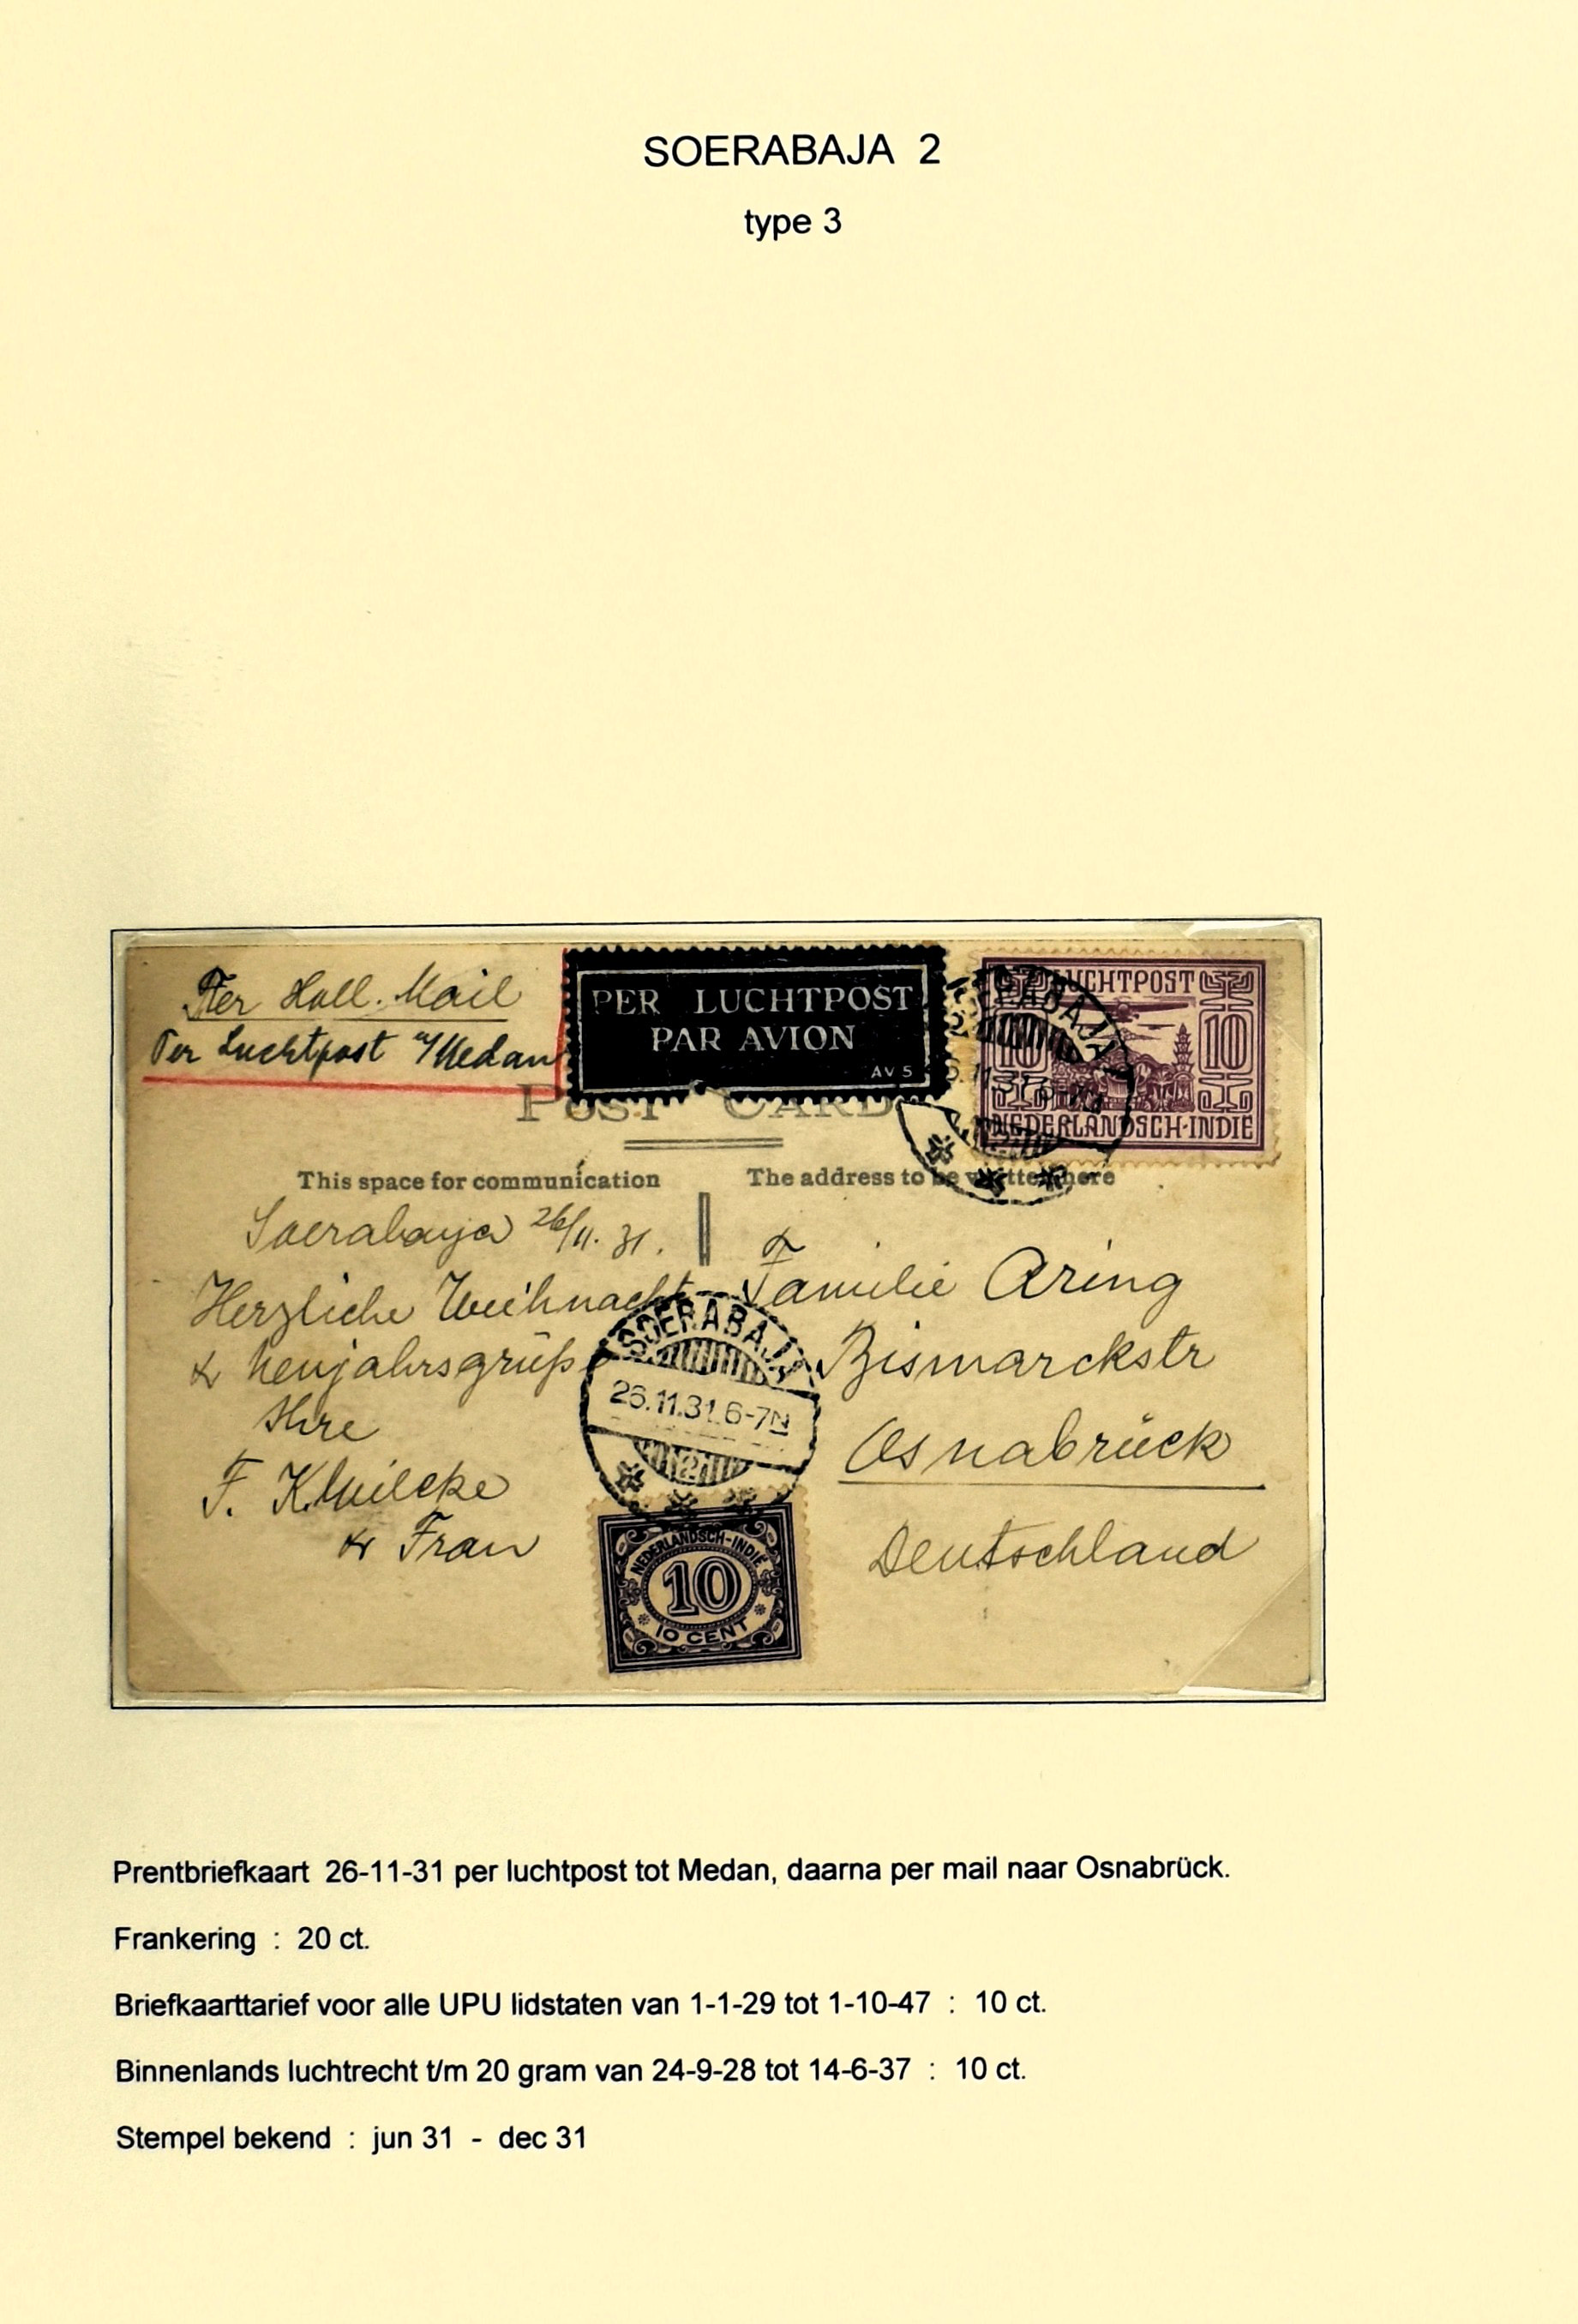 SOERABAJA 2
type 3
Per Holl. Mail
Per Luchtpost a/Medan
PER LUCHTPOST
PAR AVION
AV 5
SOERABAJA
2
LUCHTPOST
10 10
NEDERLANDSCH-INDIE
POST CARD
This space for communication
The address to be written here
Soerabaya 26/11. 31.
Herzliche Weihnacht
& Neujahrsgrüße
Ihre
& Frau
Familie Aring
Bismarckstr
Osnabrück
Deutschland
SOERABAJA
26.11.31.6-7N
2
NEDERLANDSCH-INDIE
10
10 CENT
Prentbriefkaart 26-11-31 per luchtpost tot Medan, daarna per mail naar Osnabrück.
Frankering : 20 ct.
Briefkaarttarief voor alle UPU lidstaten van 1-1-29 tot 1-10-47 : 10 ct.
Binnenlands luchtrecht t/m 20 gram van 24-9-28 tot 14-6-37 : 10 ct.
Stempel bekend : jun 31 - dec 31